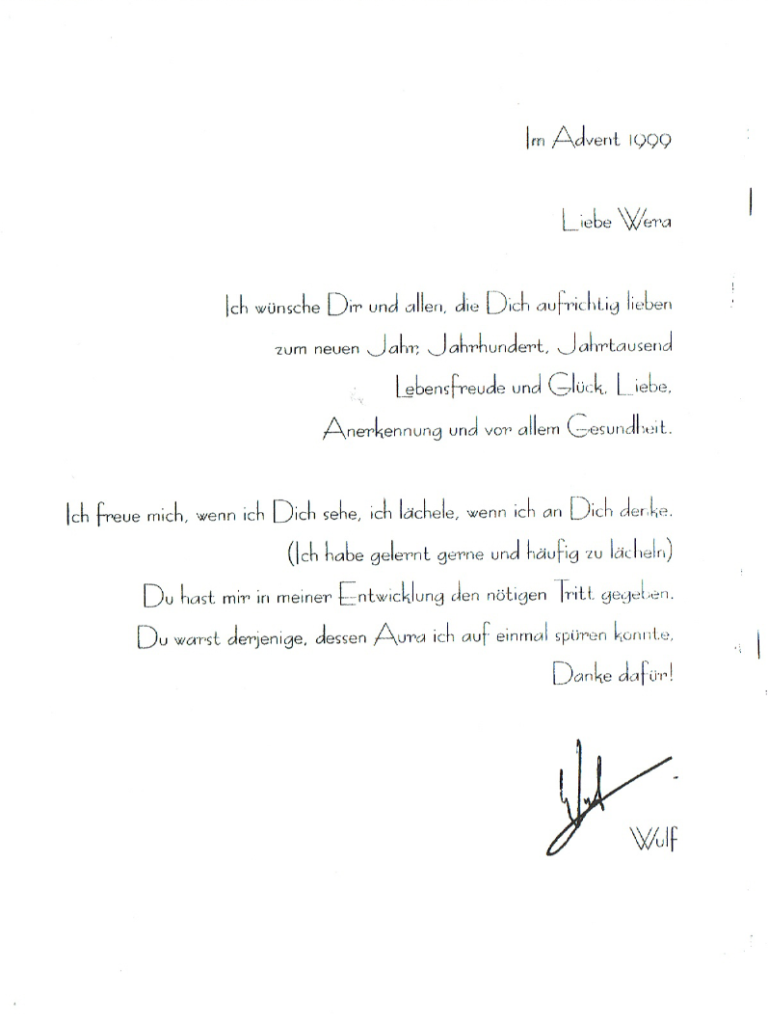 Im Advent 1999
Liebe Wera
Ich wünsche Dir und allen, die Dich aufrichtig lieben
zum neuen Jahr, Jahrhundert, Jahrtausend
Lebensfreude und Glück, Liebe,
Anerkennung und vor allem Gesundheit.
Ich freue mich, wenn ich Dich sehe, ich lächele, wenn ich an Dich denke.
(Ich habe gelernt gerne und häufig zu lächeln)
Du hast mir in meiner Entwicklung den nötigen Tritt gegeben.
Du warst derjenige, dessen Aura ich auf einmal spüren konnte.
Danke dafür!
Wulf
Wulf